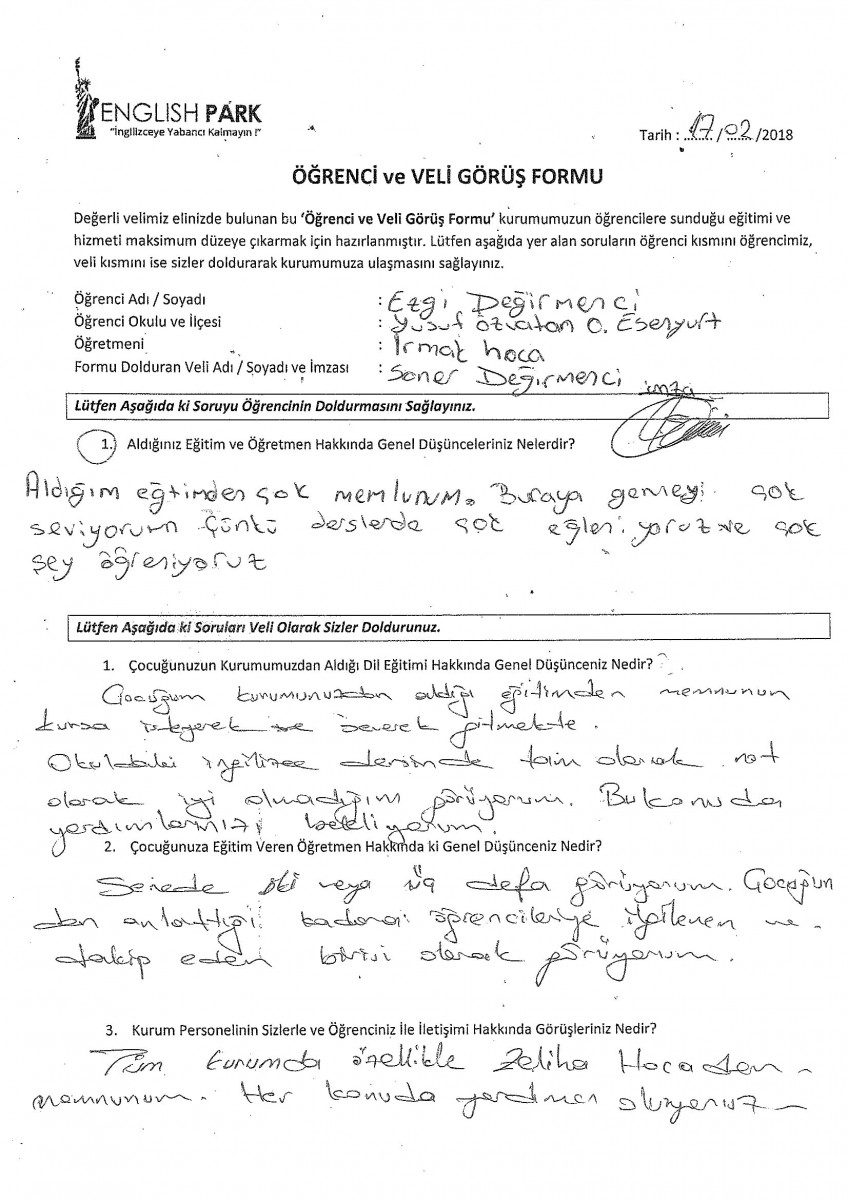 ENGLISH PARK
"İngilizceye Yabancı Kalmayın !"
Tarih : 17/02/2018
ÖĞRENCİ ve VELİ GÖRÜŞ FORMU
Değerli velimiz elinizde bulunan bu 'Öğrenci ve Veli Görüş Formu' kurumumuzun öğrencilere sunduğu eğitimi ve
hizmeti maksimum düzeye çıkarmak için hazırlanmıştır. Lütfen aşağıda yer alan soruların öğrenci kısmını öğrencimiz,
veli kısmını ise sizler doldurarak kurumumuza ulaşmasını sağlayınız.
Öğrenci Adı / Soyadı : Ezgi Değirmenci
Öğrenci Okulu ve İlçesi : Yusuf Özvatan O. Esenyurt
Öğretmeni : Irmak hoca
Formu Dolduran Veli Adı / Soyadı ve İmzası : Soner Değirmenci imza
Lütfen Aşağıda ki Soruyu Öğrencinin Doldurmasını Sağlayınız.
1. Aldığınız Eğitim ve Öğretmen Hakkında Genel Düşünceleriniz Nelerdir?
Aldığım eğtimden çok memlunum. Buraya gemeyi çok
seviyorum Çünkü derslerde çok eğleniyoruz ve çok
şey öğreniyoruz
Lütfen Aşağıda ki Soruları Veli Olarak Sizler Doldurunuz.
1. Çocuğunuzun Kurumumuzdan Aldığı Dil Eğitimi Hakkında Genel Düşünceniz Nedir?
Çocuğum kurumunuzdan aldığı eğitimden memnunun
kursa isteyerek ve severek gitmekte.
Okuldaki ingilizce dersinde tam olarak not
olarak iyi olmadığını görüyorum. Bu konuda
yardımlarınızı bekliyorum.
2. Çocuğunuza Eğitim Veren Öğretmen Hakkında ki Genel Düşünceniz Nedir?
Senede iki veya üç defa görüyorum. Çocuğun
dan anlattığı kadarı öğrencileriyle ilgilenen ve
takip eden birisi olarak görüyorum.
3. Kurum Personelinin Sizlerle ve Öğrenciniz İle İletişimi Hakkında Görüşleriniz Nedir?
Tüm kurumda özellikle Zeliha Hocadan
memnunum. Her konuda yardımcı oluyoruz